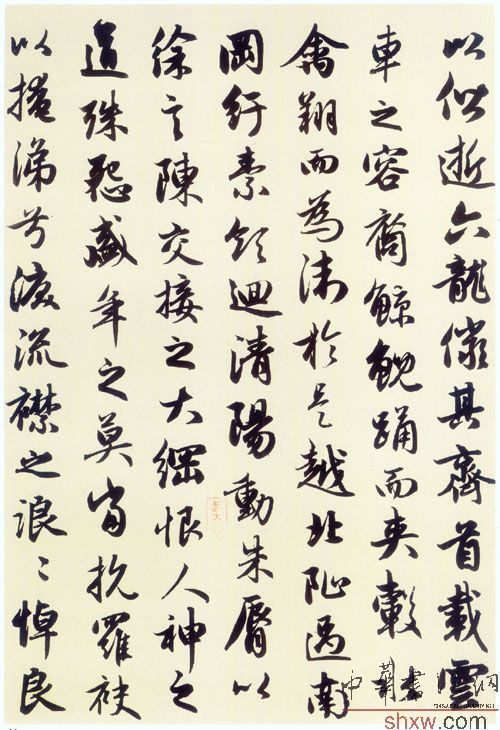 以偕逝六龍儼其齊首載雲
車之容裔鯨鯢踊而夾轂水
禽翔而為衛於是越北阯過南
岡紆素領迴清陽動朱脣以
徐言陳交接之大綱恨人神之
道殊怨盛年之莫當抗羅袂
以掩涕兮淚流襟之浪〻悼良
中華書法網
shxw.com